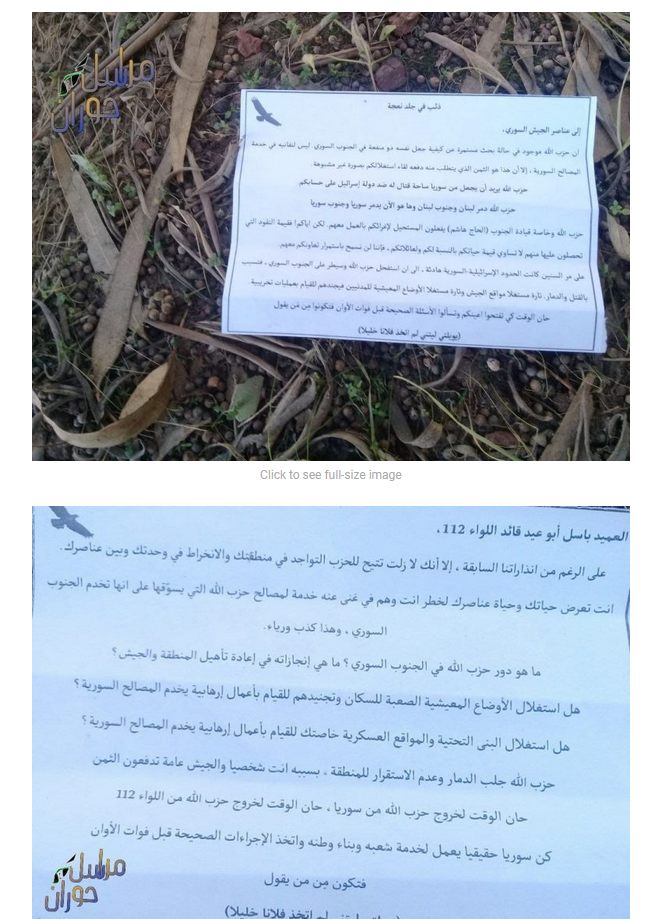 مراسل
حوران
ذئب في جلد نعجة
إلى عناصر الجيش السوري،
ان حزب الله موجود في حالة بحث مستمرة عن كيفية جعل نفسه ذو منفعة في الجنوب السوري. ليس لتفانيه في خدمة
المصالح السورية ، إلا أن هذا هو الثمن الذي يتطلب منه دفعه لقاء استغلالكم بصورة غير مشبوهة.
حزب الله يريد أن يجعل من سوريا ساحة قتال له ضد دولة إسرائيل على حسابكم
حزب الله دمر لبنان وجنوب لبنان وها هو الأن يدمر سوريا وجنوب سوريا
حزب الله وخاصة قيادة الجنوب (الحاج هاشم) يفعلون المستحيل لإغرائكم بالعمل معهم. لكن اياكم! فقيمة النقود التي
تحصلون عليها منهم لا تساوي قيمة حياتكم بالنسبة لكم ولعائلاتكم ، فإننا لن نسمح باستمرار تعاونكم معهم.
على مر السنين كانت الحدود الإسرائيلية السورية هادئة ، الى ان استفحل حزب الله وسيطر على الجنوب السوري ، فتسبب
بالقتل والدمار. تارة مستغلا مواقع الجيش وتارة مستغلا الأوضاع المعيشية للمدنيين فيجندهم للقيام بعمليات تخريبية
حان الوقت كي تفتحوا اعينكم وتسألوا الأسئلة الصحيحة قبل فوات الأوان فتكونوا مِن مَن يقول
(يويلتي ليتني لم اتخذ فلانا خليلا)
Click to see full-size image
العميد باسل أبو عيد قائد اللواء 112،
على الرغم من انذاراتنا السابقة ، إلا أنك لا زلت تتيح للحزب التواجد في منطقتك والانخراط في وحدتك وبين عناصرك.
انت تعرض حياتك وحياة عناصرك لخطر انت وهم في غنى عنه خدمة لمصالح حزب الله التي يسوّقها على انها تخدم الجنوب
السوري ، وهذا كذب ورياء.
ما هو دور حزب الله في الجنوب السوري؟ ما هي إنجازاته في إعادة تأهيل المنطقة والجيش؟
هل استغلال الأوضاع المعيشية الصعبة للسكان وتجنيدهم للقيام بأعمال إرهابية يخدم المصالح السورية؟
هل استغلال البنى التحتية والمواقع العسكرية خاصتك للقيام بأعمال إرهابية يخدم المصالح السورية؟
حزب الله جلب الدمار وعدم الاستقرار للمنطقة . بسببه انت شخصيا والجيش عامة تدفعون الثمن
حان الوقت لخروج حزب الله من سوريا ، حان الوقت لخروج حزب الله من اللواء 112
كن سوريا حقيقيا يعمل لخدمة شعبه وبناء وطنه واتخذ الإجراءات الصحيحة قبل فوات الأوان
فتكون مِن مَن يقول
ليتني لم اتخذ فلانا خليلا)
مراسل
حوران